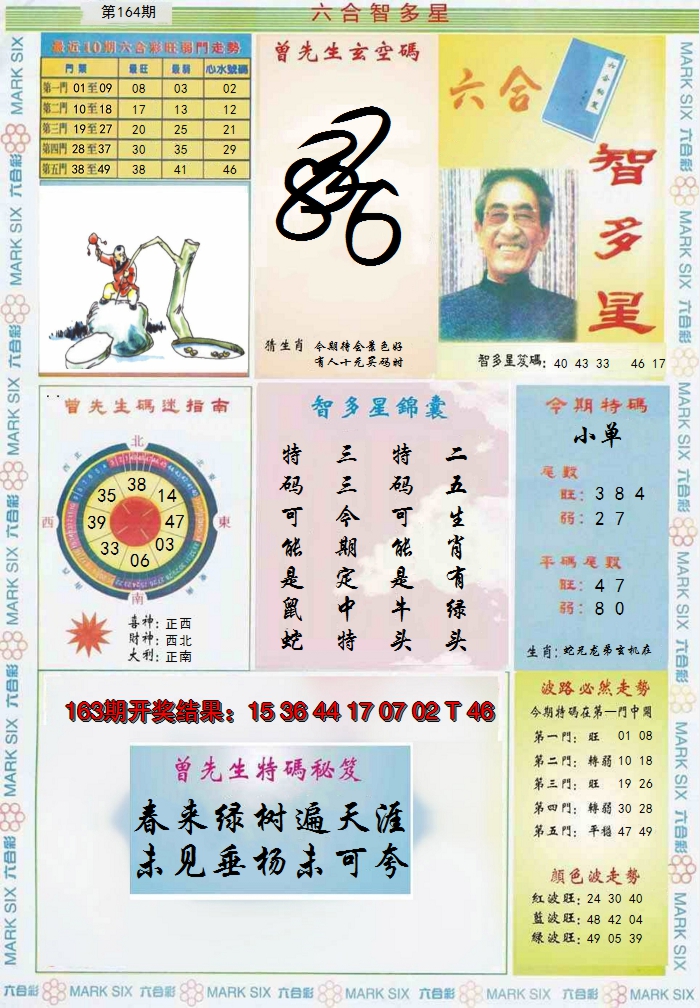 第164期
六合智多星
最近10期六合彩旺弱門走勢
門票 最旺 最弱 心水號碼
第一門 01至09 08 03 02
第二門 10至18 17 13 12
第三門 19至27 20 25 21
第四門 28至37 30 35 29
第五門 38至49 38 41 46
曾先生玄空碼
猜生肖 今期待会景色好
有人十元买码时
六合
智多星
智多星笈碼：40 43 33 46 17
曾先生碼迷指南
北
西
東
南
38
14
47
03
06
33
39
35
喜神：正西
財神：西北
大利：正南
智多星錦囊
二五生肖有绿头
特码可能是牛头
三三今期定中特
特码可能是鼠蛇
今期特碼
小单
尾數
旺：3 8 4
弱：2 7
平碼尾數
旺：4 7
弱：8 0
生肖：蛇兄龙弟玄机在
163期开奖结果：15 36 44 17 07 02 T 46
曾先生特碼秘笈
春来绿树遍天涯
未见垂杨未可夸
波路必然走勢
今期特碼在第一門中開
第一門：旺 01 08
第二門：轉弱 10 18
第三門：旺 19 26
第四門：轉弱 30 28
第五門：平穩 47 49
顔色波走勢
紅波旺：24 30 40
藍波旺：48 42 04
綠波旺：49 05 39
MARK SIX 六合彩 MARK SIX 六合彩 MARK SIX 六合彩 MARK SIX 六合彩 MARK SIX